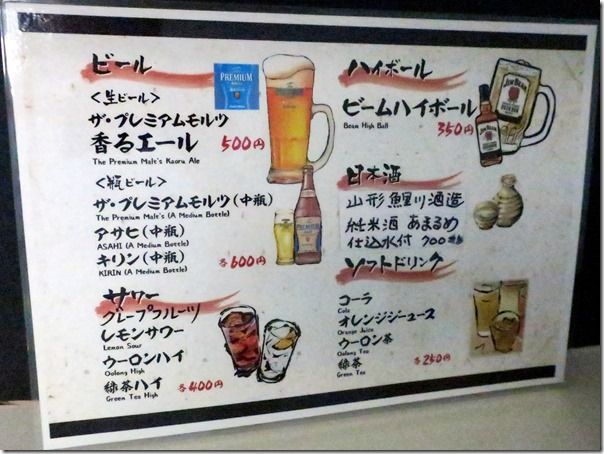 ビール
PREMIUM
<生ビール>
ザ・プレミアムモルツ
香るエール 500円
The Premium Malt's Kaoru Ale
<瓶ビール>
ザ・プレミアムモルツ(中瓶)
The Premium Malt's (A Medium Bottle)
アサヒ(中瓶)
ASAHI (A Medium Bottle)
キリン(中瓶) 各600円
KIRIN (A Medium Bottle)
サワー
グレープフルーツ
レモンサワー
Lemon Sour
ウーロンハイ
Oolong High
緑茶ハイ 各400円
Green Tea High
ハイボール
ビームハイボール
Beam High Ball 350円
JIM BEAM
日本酒
山形 鯉川酒造
純米酒 あまるめ
仕込水付 700
ソフトドリンク
コーラ
Cola
オレンジジュース
Orange Juice
ウーロン茶
Oolong Tea
緑茶 各250円
Green Tea